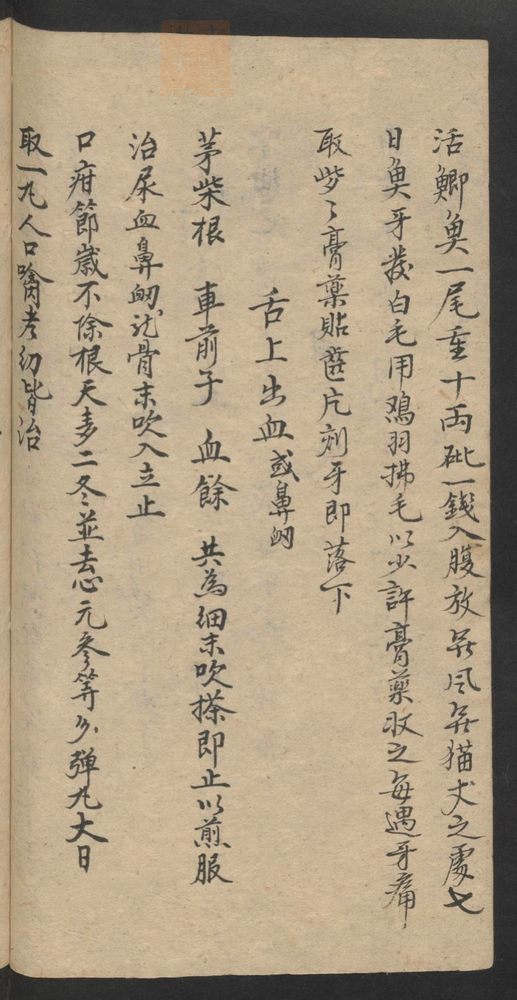 活鯽魚一尾重十両砒一錢入腹放無风無猫犬之處七
日魚牙發白毛用鳮羽拂毛以少許膏藥收之每遇牙痛
取些〻膏藥貼患片刻牙即落下
舌上出血或鼻衂
茅柴根 車前子 血餘 共為细末吹搽即止以煎服
治尿血鼻衂龙骨末吹入立止
口疳節歳不除根天麦二冬並去心元参等分弹丸大日
取一丸入口噙老幼皆治